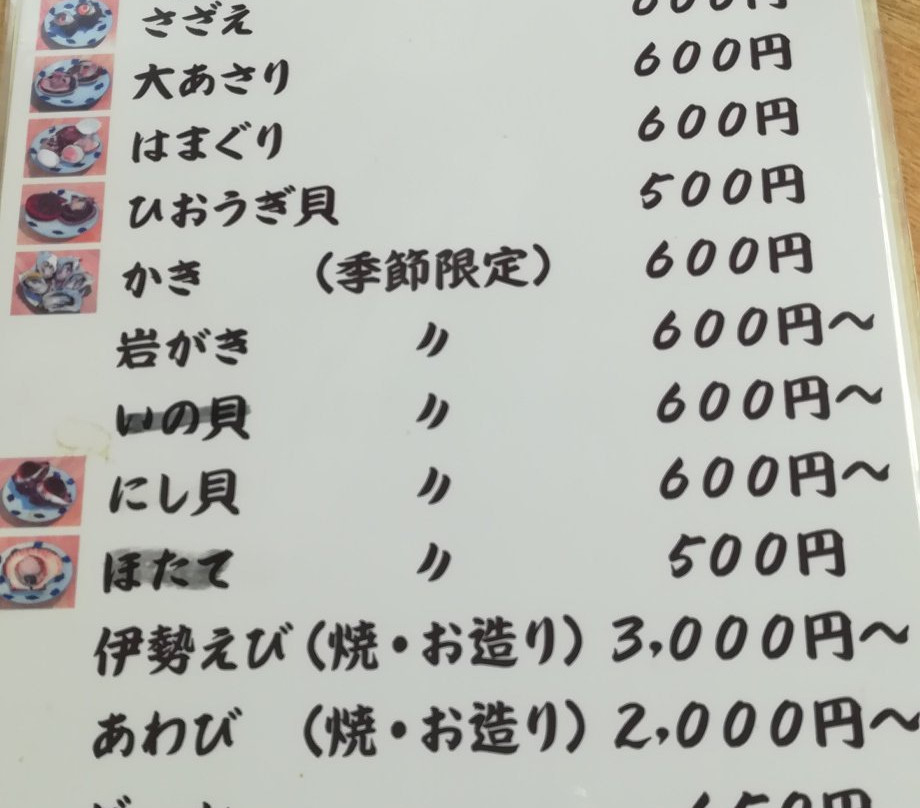 さざえ 600円
大あさり 600円
はまぐり 600円
ひおうぎ貝 500円
かき （季節限定） 600円
岩がき 〃 600円～
いの貝 〃 600円～
にし貝 〃 600円～
ほたて 〃 500円
伊勢えび（焼・お造り）3,000円～
あわび （焼・お造り）2,000円～
650円